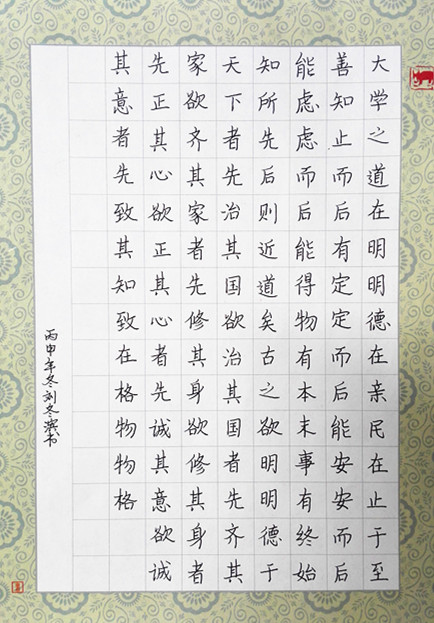 大学之道在明明德在亲民在止于至
善知止而后有定定而后能安安而后
能虑虑而后能得物有本末事有终始
知所先后则近道矣古之欲明明德于
天下者先治其国欲治其国者先齐其
家欲齐其家者先修其身欲修其身者
先正其心欲正其心者先诚其意欲诚
其意者先致其知致在格物物格
丙申年冬刘冬书